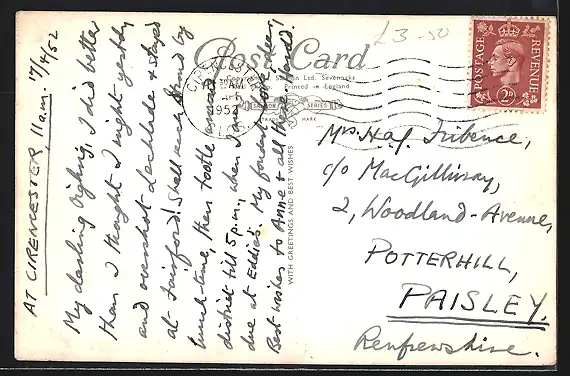 AT CIRENCESTER, 11 a.m. 17/4/52
My darling
I did better
than I thought I might yesterday
and overshot Lechlade & stayed
at Fairford! Shall reach Stroud by
lunch-time, then tootle around
district till 5 p.m. when I am
due at Eddie's. My fondest love
Best wishes to Anne & all there.
Post Card
Printed in England
SALMON SERIES
TRADE MARK
WITH GREETINGS AND BEST WISHES
1952
£3-50
POSTAGE
REVENUE
2D
Mrs. N. a. J. Tribence,
c/o MacGillivray,
2, Woodland-Avenue,
POTTERHILL,
PAISLEY.
Renfrewshire.